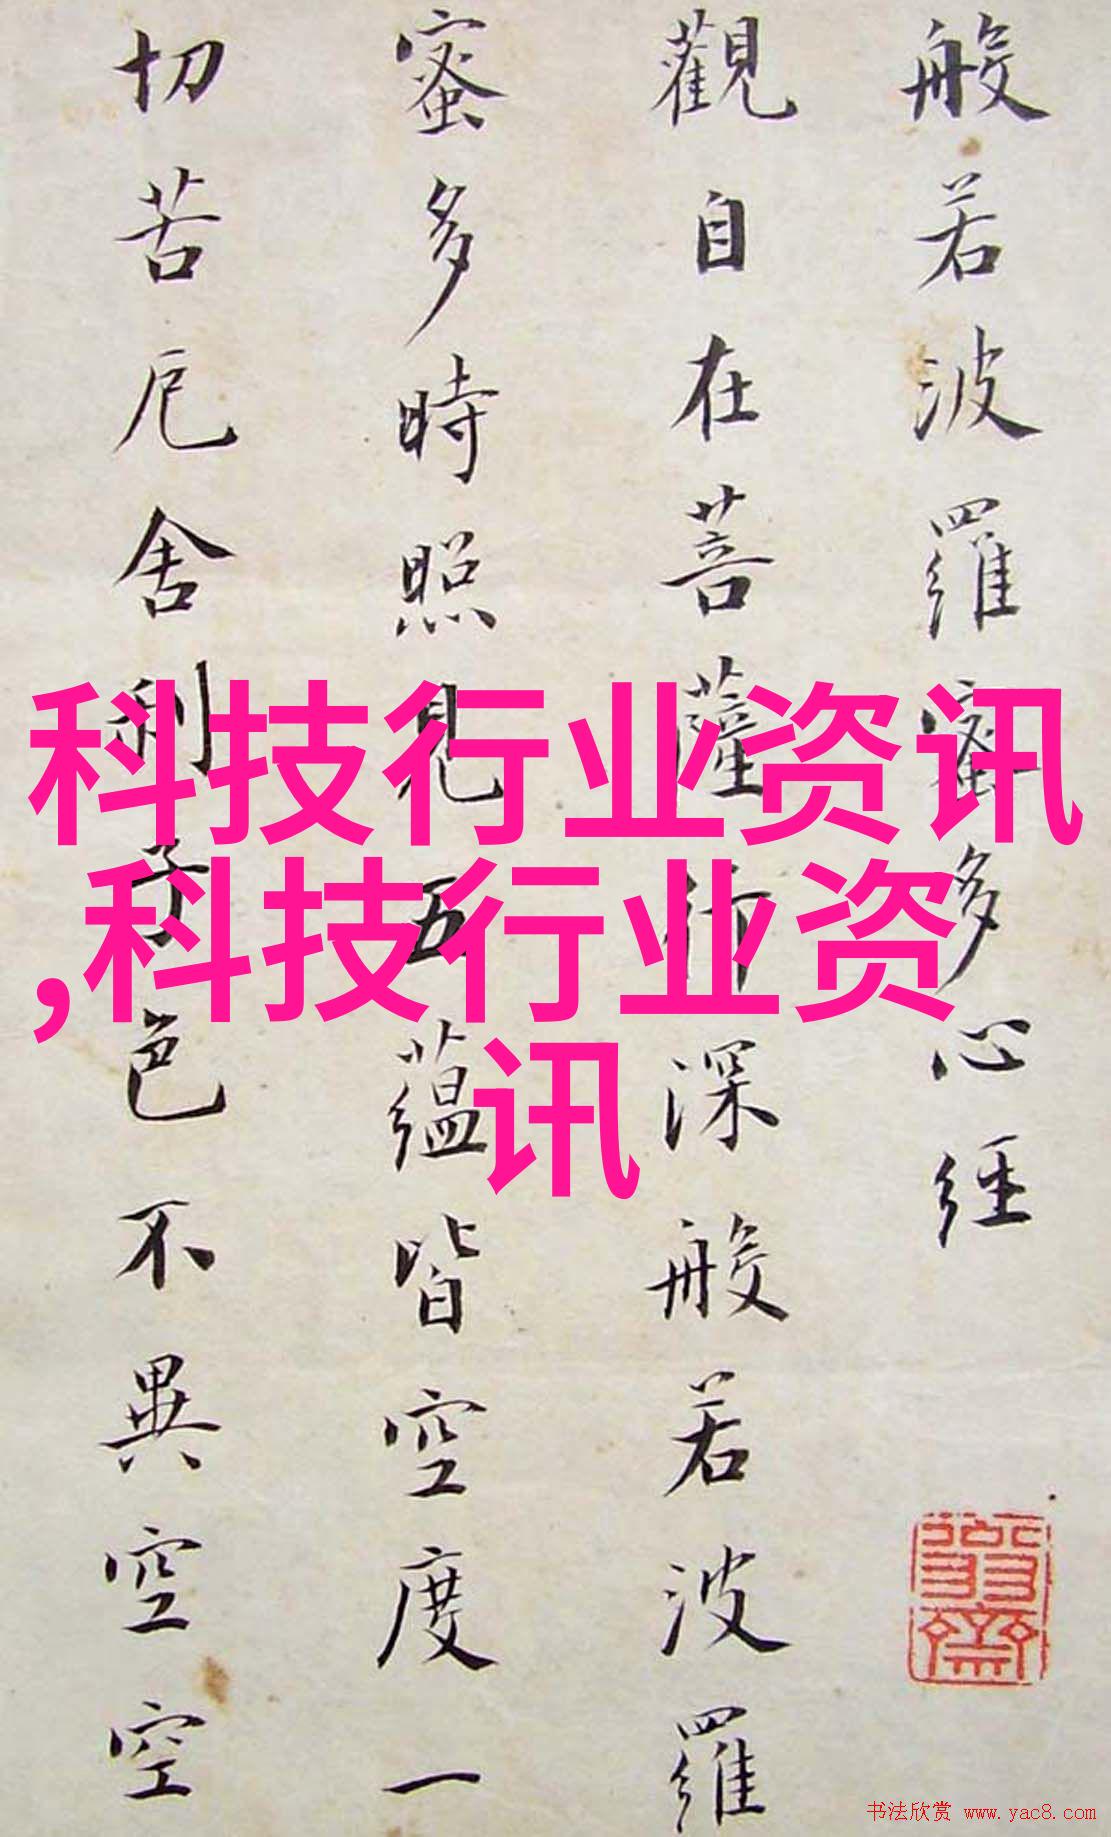 般若波羅蜜多心經
觀自在菩薩行深般若波羅
蜜多時照見五蘊皆空度一
切苦厄舍利子色不異空空
科技行业资讯
,科技行业资
讯
书法欣赏 www.yac8.com